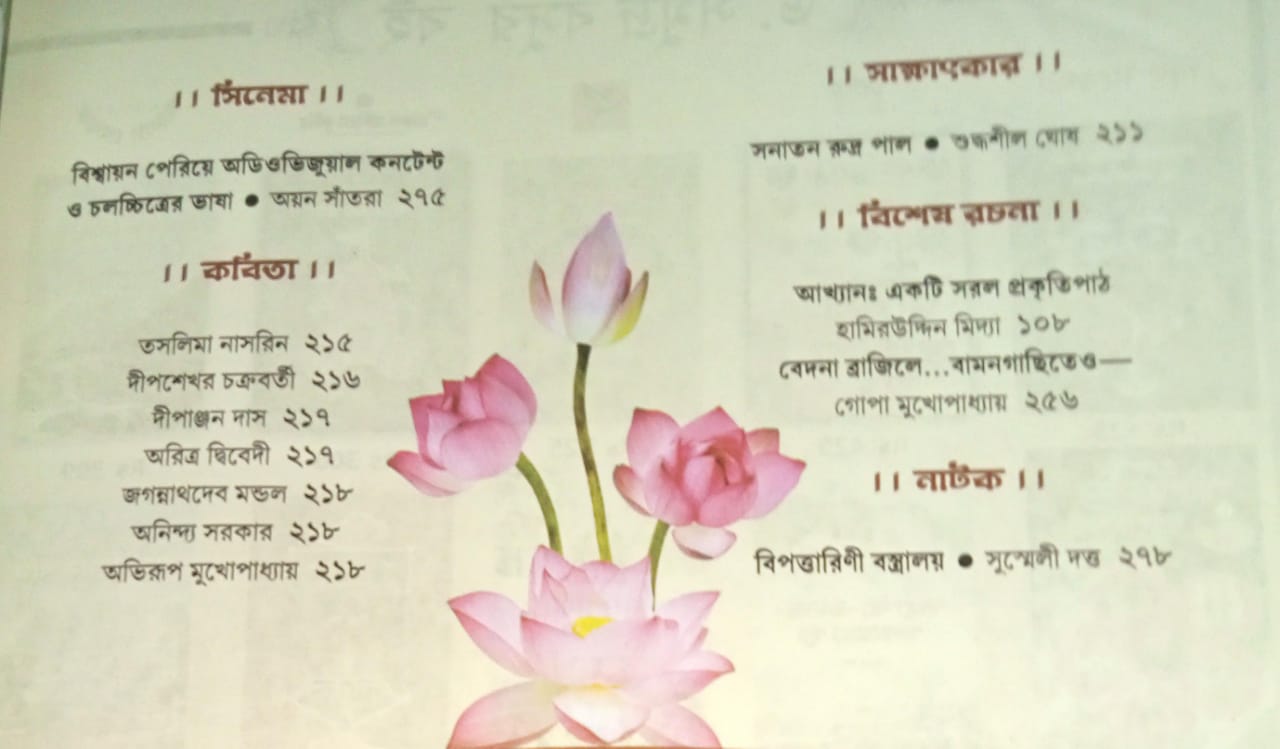 ।। সিনেমা ।।
বিশ্বায়ন পেরিয়ে অডিওভিজুয়াল কনটেন্ট
ও চলচ্চিত্রের ভাষা ● অয়ন সাঁতরা ২৭৫
।। কবিতা ।।
তসলিমা নাসরিন ২১৫
দীপশেখর চক্রবর্তী ২১৬
দীপাঞ্জন দাস ২১৭
অরিত্র দ্বিবেদী ২১৭
জগন্নাথদেব মন্ডল ২১৮
অনিন্দ্য সরকার ২১৮
অভিরূপ মুখোপাধ্যায় ২১৮
।। সাক্ষাৎকার ।।
সনাতন রুদ্র পাল ● শুভ্রশীল ঘোষ ২১১
।। বিশেষ রচনা ।।
আখ্যানঃ একটি সরল প্রকৃতিপাঠ
হামিরউদ্দিন মিদ্যা ১০৮
বেদনা ব্রাজিলে...বামনগাছিতেও—
গোপা মুখোপাধ্যায় ২৫৬
।। নাটক ।।
বিপত্তারিণী বস্ত্রালয় ● দত্ত ২৭৮